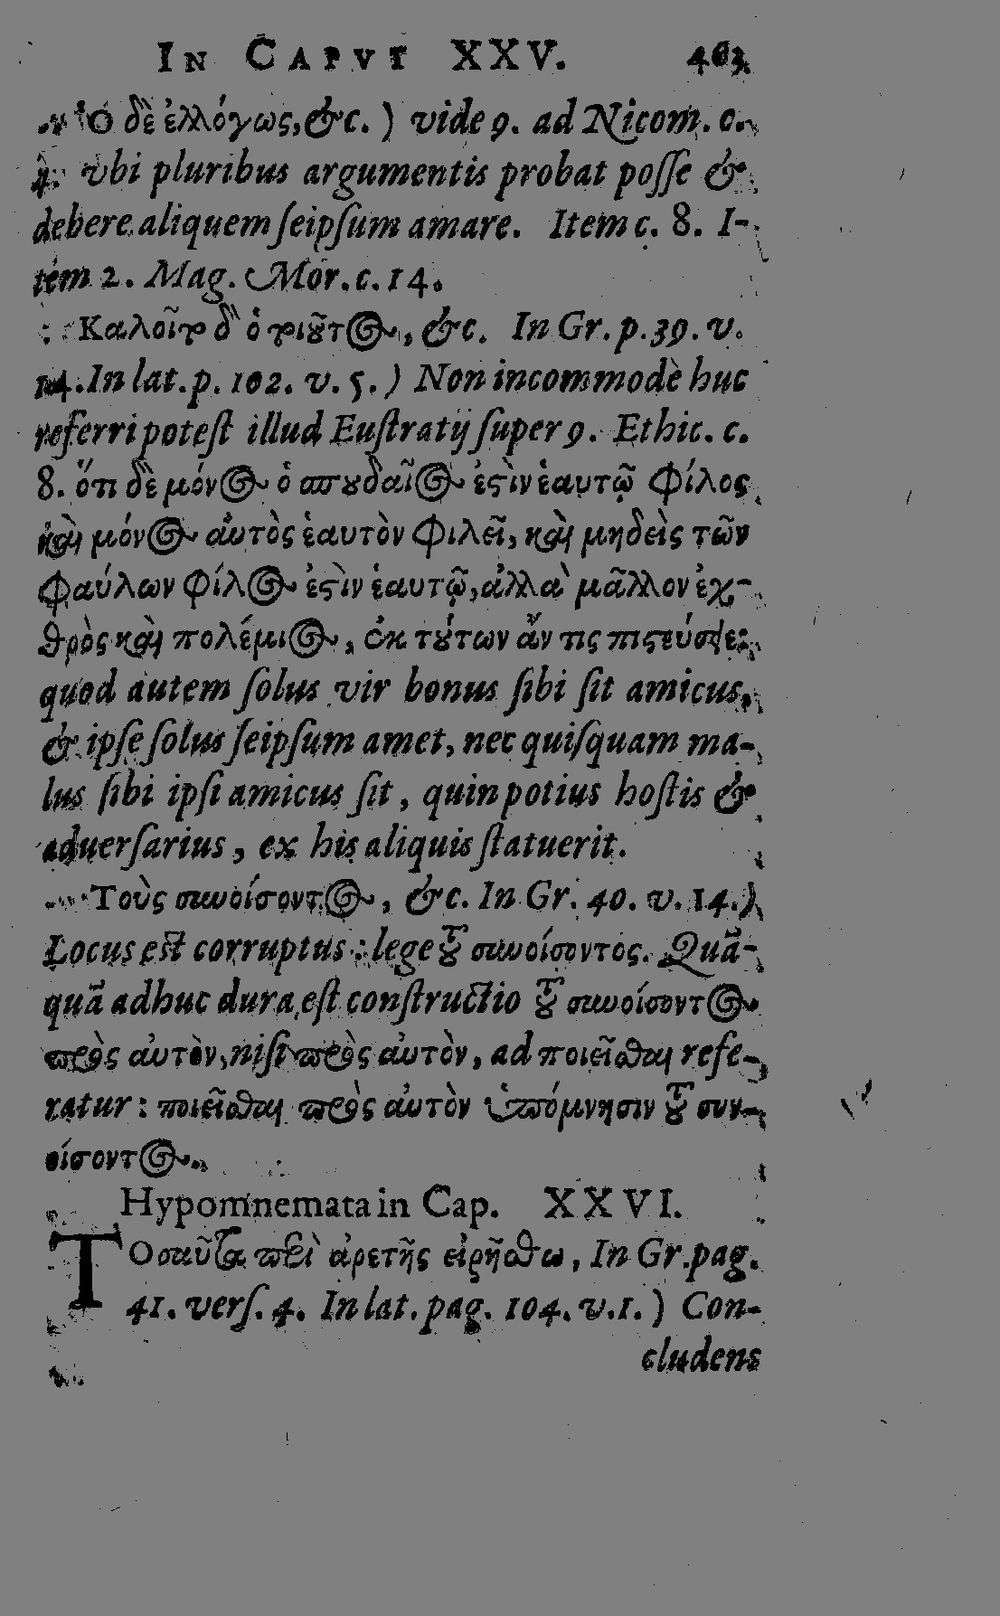 IN CAPVT XXV. 463
Ὁ δὲ ἐλλόγως, &c. ) vide 9. ad Nicom. c.
4. vbi pluribus argumentis probat posse &
debere aliquem seipsum amare. Item c. 8. I-
tem 2. Mag. Mor. c. 14.
Καλοῖτο δ' ὁ τοιοῦτος, &c. In Gr. p. 39. v.
14. In lat. p. 102. v. 5. ) Non incommodè huc
referri potest illud Eustratij super 9. Ethic. c.
8. ὅτι δὲ μόνος ὁ σπουδαῖος ἐστὶν ἑαυτῷ φίλος
καὶ μόνος αὐτὸς ἑαυτὸν φιλεῖ, καὶ μηδεὶς τῶν
φαύλων φίλος ἐστὶν ἑαυτῷ, ἀλλὰ μᾶλλον ἐχ-
θρὸς καὶ πολέμιος, ἐκ τούτων ἄν τις πιστεύσῃ:
quod autem solus vir bonus sibi sit amicus,
& ipse solus seipsum amet, nec quisquam ma-
lus sibi ipsi amicus sit, quin potius hostis &
aduersarius, ex his aliquis statuerit.
Τοὺς συνοίσοντος, &c. In Gr. 40. v. 14.)
Locus est corruptus: lege τοῦ συνοίσοντος. Quā-
quā adhuc dura est constructio τοῦ συνοίσοντος
πρὸς αὐτὸν, nisi πρὸς αὐτὸν, ad ποιεῖσθαι refe-
ratur: ποιεῖσθαι πρὸς αὐτὸν ὑπόμνησιν τοῦ συν-
οίσοντος.
Hypomnemata in Cap. XXVI.
ΤΟσαῦτα περὶ ἀρετῆς εἰρήσθω, In Gr. pag.
41. vers. 4. In lat. pag. 104. v. 1. ) Con-
cludens